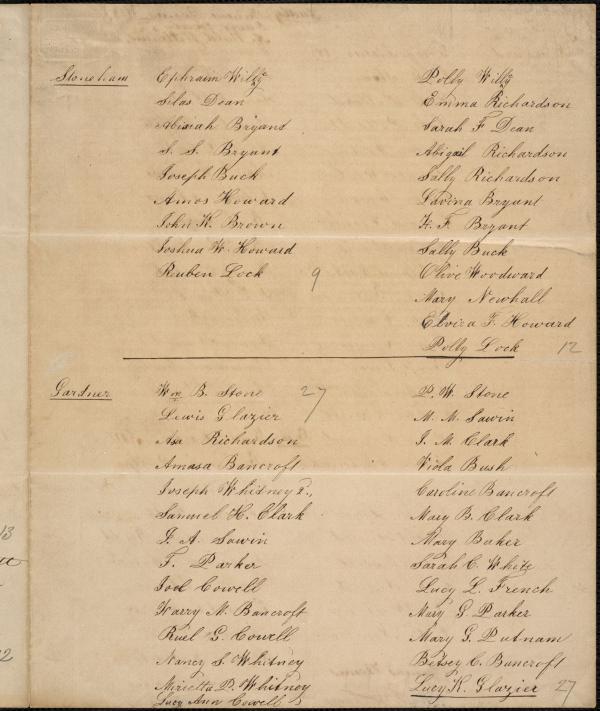 Stoneham
Ephraim Willy
Silas Dean
Abijah Bryant
S. S. Bryant
Joseph Buck
Amos Howard
John K. Brown
Joshua W. Howard
Reuben Lock 9
Polly Willy
Emma Richardson
Sarah F Dean
Abigail Richardson
Sally Richardson
Lavina Bryant
H. F. Bryant
Sally Buck
Olive Woodward
Mary Newhall
Elvira F. Howard
Polly Lock 12
Gardner
Wm B. Stone 27
Lewis Glazier
Asa Richardson
Amasa Bancroft
Joseph Whitney 2.,
Samuel H. Clark
J. A. Sawin
F. Parker
Joel Cowell
Harry N. Bancroft
Ruel G. Cowell
Nancy S. Whitney
Mirietta P. Whitney
Lucy Ann Cowell
P. W. Stone
M. M. Sawin
J. M. Clark
Viola Bush
Caroline Bancroft
Mary B. Clark
Mary Baker
Sarah C. White
Lucy L. French
Mary G. Parker
Mary G. Putnam
Betsey C. Bancroft
Lucy K. Glazier 27